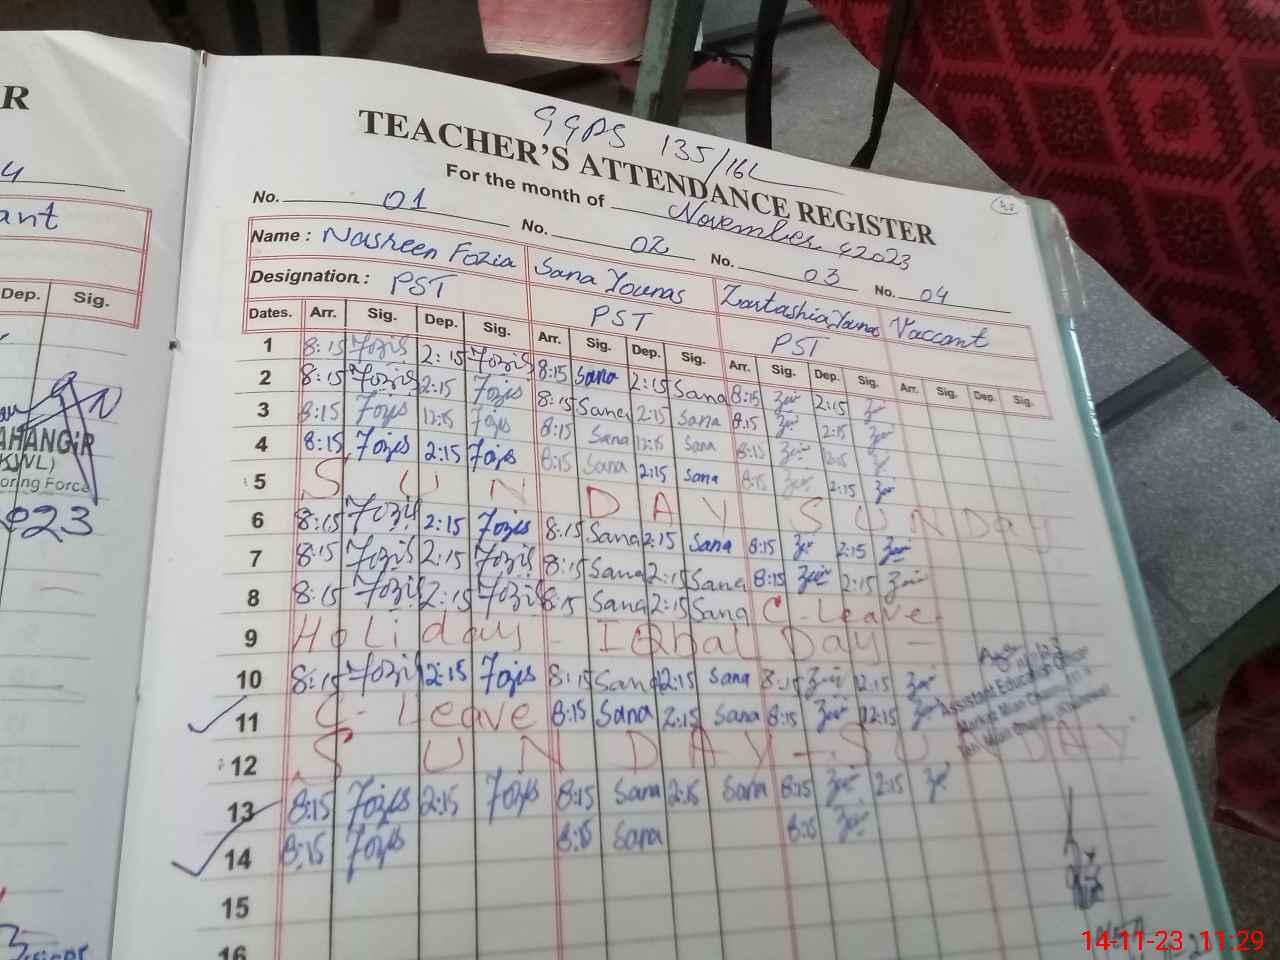 R
GGPS 135/16L
TEACHER'S ATTENDANCE REGISTER
For the month of November 2023
No. 01 No. 02 No. 03 No. 04
Name : Nasreen Fozia Sana Younas Zartashia Younas Vaccant
Designation : PST PST PST
Dates. Arr. Sig. Dep. Sig. Arr. Sig. Dep. Sig. Arr. Sig. Dep. Sig. Arr. Sig. Dep. Sig.
1 8:15 Fozia 2:15 Fozia 8:15 Sana 2:15 Sana 8:15 2:15
2 8:15 Fozia 2:15 Fozia 8:15 Sana 2:15 Sana 8:15 2:15
3 8:15 Fozia 12:15 Fozia 8:15 Sana 12:15 Sana 8:15 12:15
4 8:15 Fozia 2:15 Fozia 8:15 Sana 2:15 Sana 8:15 2:15
5 S U N D A Y S U N Day
6 8:15 Fozia 2:15 Fozia 8:15 Sana 2:15 Sana 8:15 2:15
7 8:15 Fozia 2:15 Fozia 8:15 Sana 2:15 Sana 8:15 2:15
8 8:15 Fozia 2:15 Fozia 8:15 Sana 2:15 Sana C-Leave
9 Holiday - Iqbal Day -
10 8:15 Fozia 2:15 Fozia 8:15 Sana 12:15 Sana 8:15 12:15
11 C-Leave 8:15 Sana 2:15 Sana 8:15 12:15
12 S U N D A Y - S U N D A Y
13 8:15 Fozia 2:15 Fozia 8:15 Sana 2:15 Sana 8:15 2:15
14 8:15 Fozia 8:15 Sana 8:15
15
16
ant
Dep. Sig.
AHANGiR
(KWL)
oring Force
023
Assistant Education Officer
14-11-23 11:29